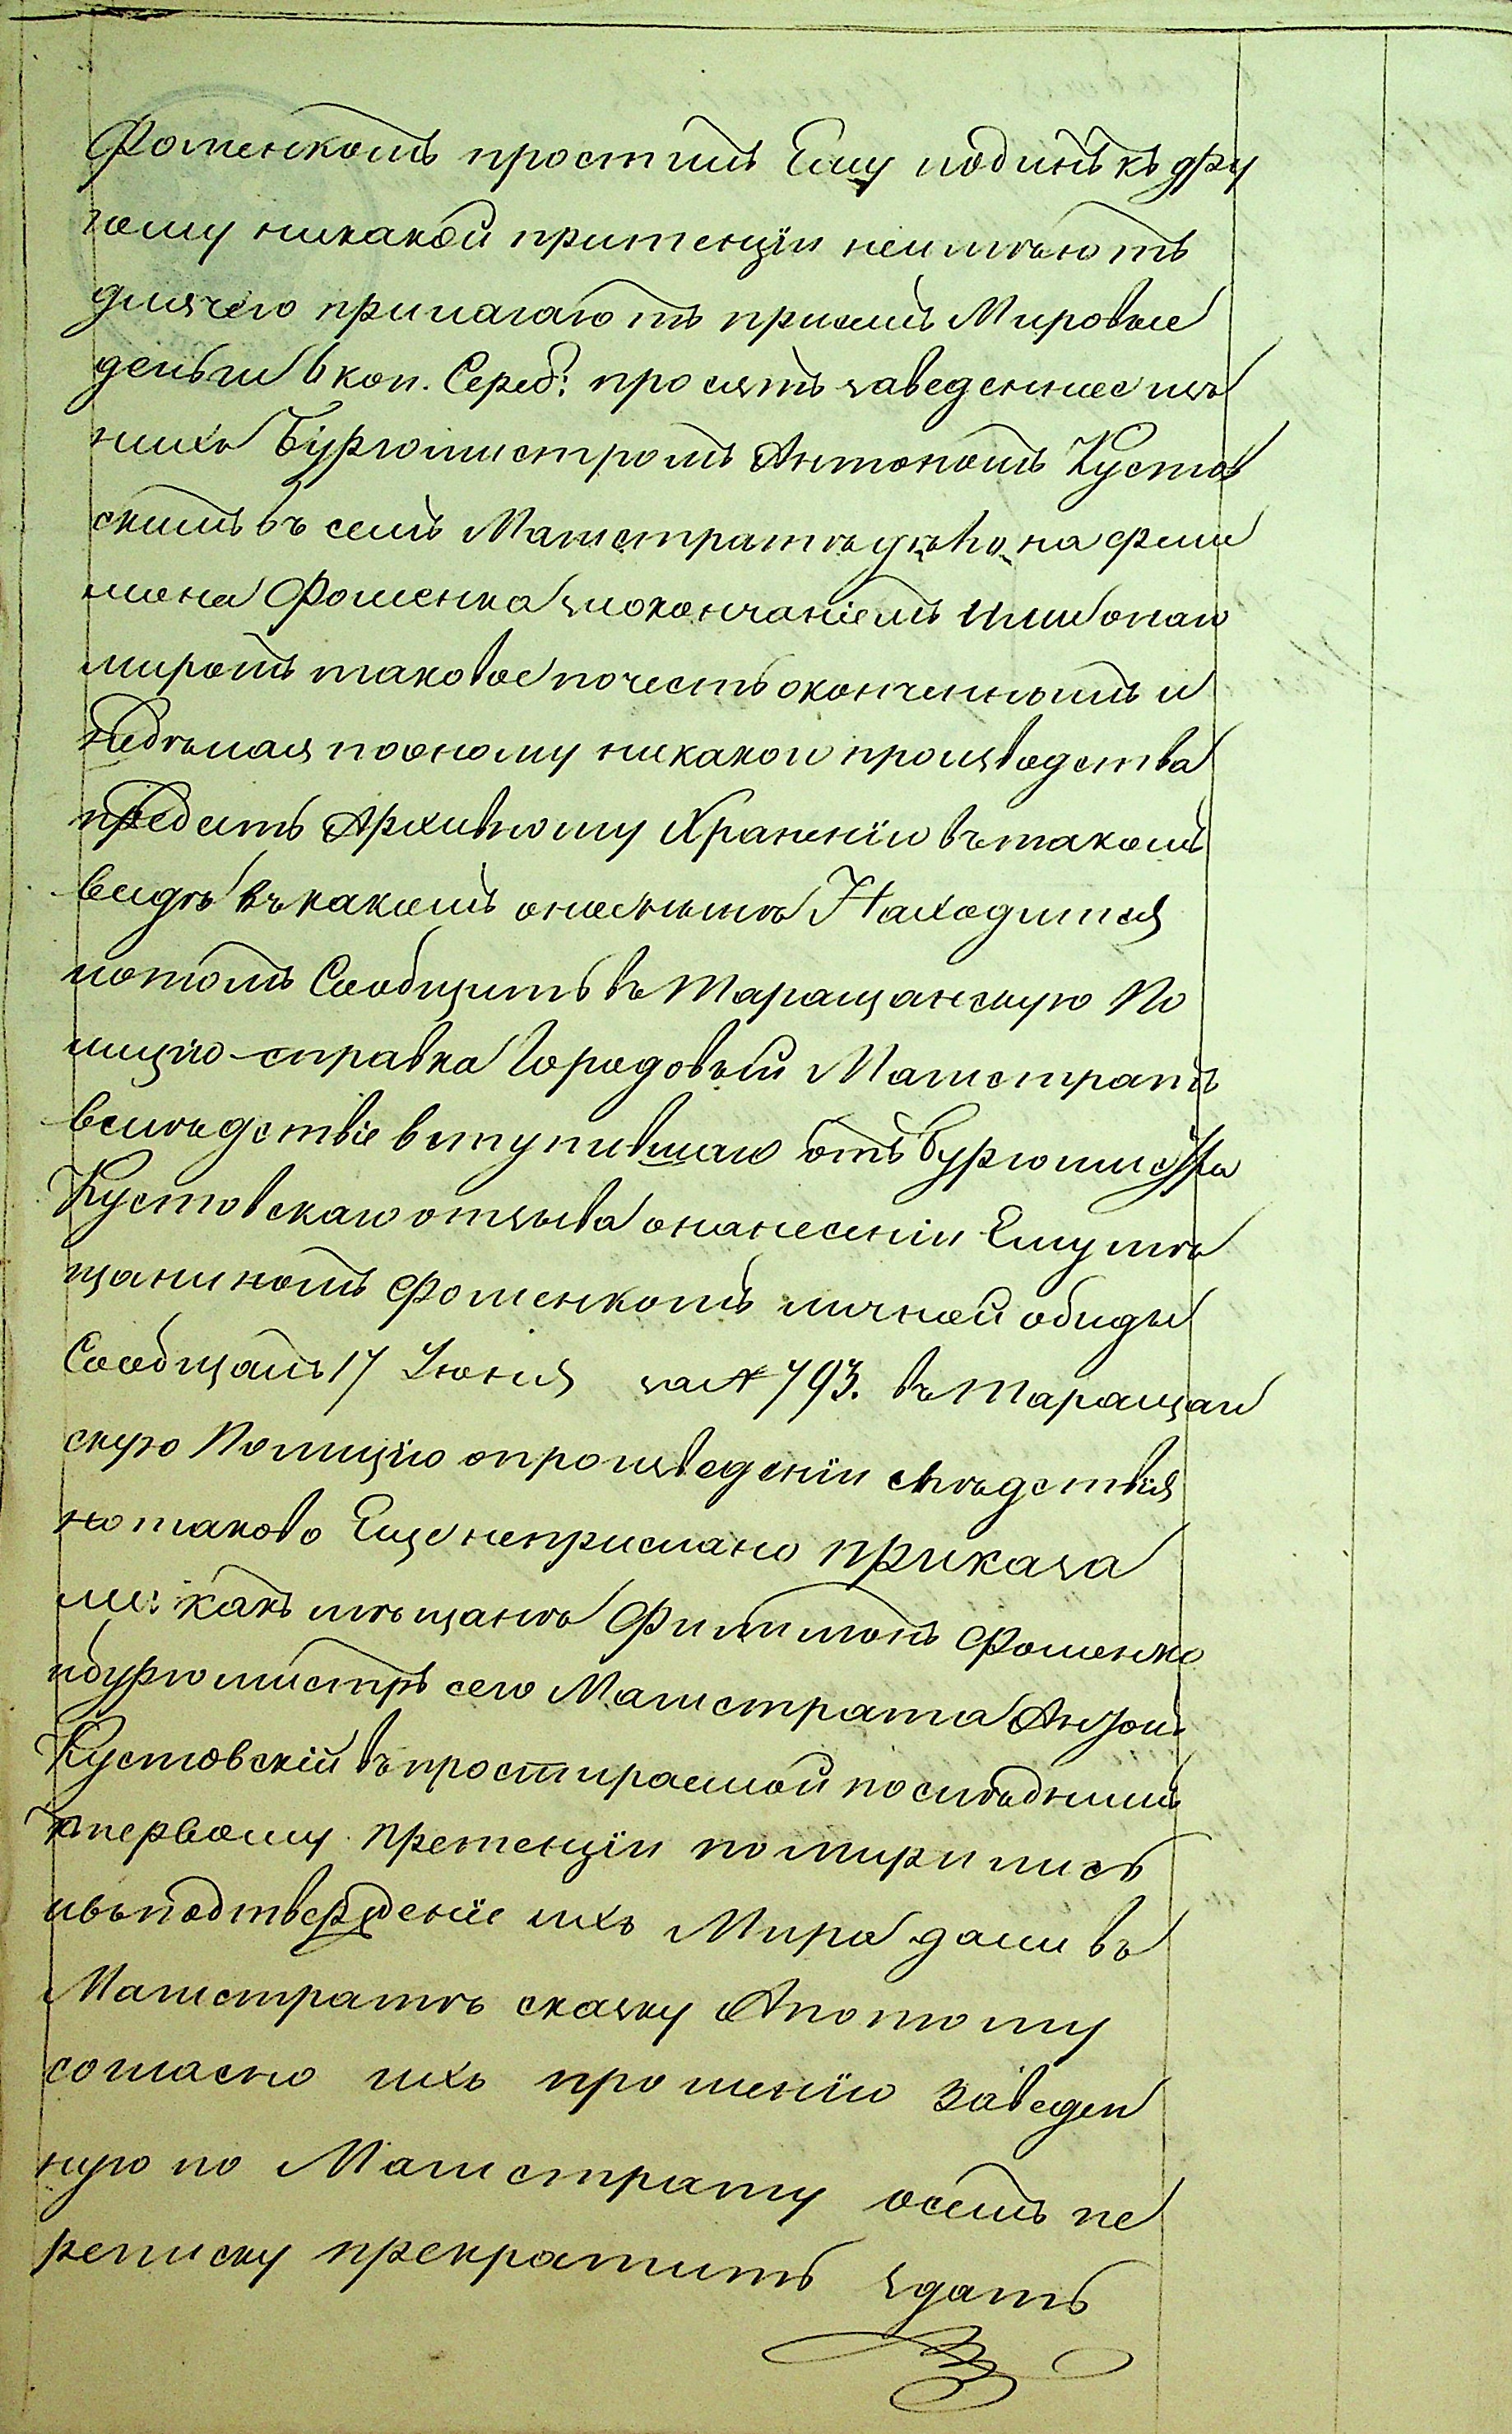 Фоменкомъ простилъ Ему иодинъ къ дру
гому никакой притенціи неимѣютъ
длячего прилагаютъ присемъ Мировые
деньги 6 коп. Сереб: просятъ заведенное изъ
нихъ Бургомистромъ Антономъ Кустов
скимъ въ семъ Магистратѣ дѣло на Фили
мона Фоменка заокончаніемъ ими онаго
миромъ таковое почесть оконченнымъ и
недѣлая поономугникакого производства
предать Архивному Храненію въ такомъ
видѣ въ какомъ оное нынѣ Находится
иотомъ Сообщить въ Таращанскую По
лицію справка Городовый Магистратъ
вслѣдствіе вступившаго отъ Бургомистра
Кустовскаго отзыва онанесеніи Ему мѣ
щаниномъ Фоменкомъ личной обиды
Сообщалъ 17 Іюня за № 793. въ Таращан
скую Полицію опроизведеніи слѣдствія
но таково Еще неприслано приказа
ли: какъ мѣщане Филимонъ Фоменко
ибургомистръ сего Магистрата Антонъ
Кустовскій въ простираемой послѣднимъ
къ первому претенціи помирились
ивъ подтвержденіе ихъ Мира дали въ
Магистратѣ сказку Апотому
согласно ихъ прошенію заведен
ную по Магистрату осемъ пе
реписку прекратить здать